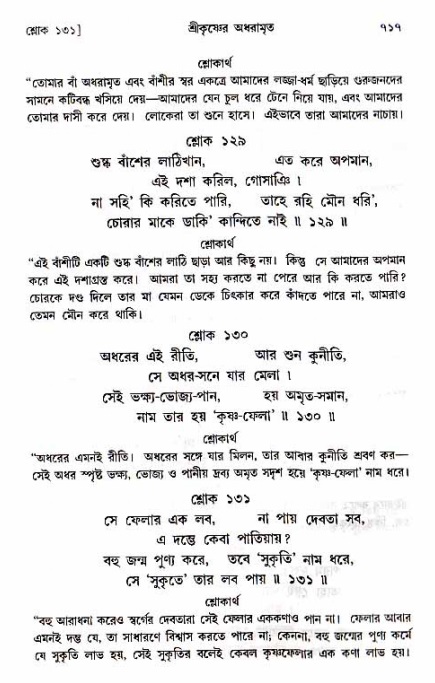 শ্লোক ১৩১] শ্রীকৃষ্ণের অধরামৃত ৭১৭
শ্লোকার্থ
“তোমার বাঁ অধরামৃত এবং বাঁশীর স্বর একত্রে আমাদের লজ্জা-ধর্ম ছাড়িয়ে গুরুজনদের
সামনে কটিবন্ধ খসিয়ে দেয়—আমাদের যেন চুল ধরে টেনে নিয়ে যায়, এবং আমাদের
তোমার দাসী করে দেয়। লোকেরা তা শুনে হাসে। এইভাবে তারা আমাদের নাচায়।
শ্লোক ১২৯
শুষ্ক বাঁশের লাঠিখান, এত করে অপমান,
এই দশা করিল, গোসাঞি।
না সহি' কি করিতে পারি, তাহে রহি মৌন ধরি',
চোরার মাকে ডাকি' কান্দিতে নাই ॥ ১২৯ ॥
শ্লোকার্থ
“এই বাঁশীটি একটি শুষ্ক বাঁশের লাঠি ছাড়া আর কিছু নয়। কিন্তু সে আমাদের অপমান
করে এই দশাগ্রস্ত করে। আমরা তা সহ্য করতে না পেরে আর কি করতে পারি?
চোরকে দণ্ড দিলে তার মা যেমন ডেকে চিৎকার করে কাঁদতে পারে না, আমরাও
তেমন মৌন করে থাকি।
শ্লোক ১৩০
অধরের এই রীতি, আর শুন কুনীতি,
সে অধর-সনে যার মেলা।
সেই ভক্ষ্য-ভোজ্য-পান, হয় অমৃত-সমান,
নাম তার হয় 'কৃষ্ণ-ফেলা' ॥ ১৩০ ॥
শ্লোকার্থ
“অধরের এমনই রীতি। অধরের সঙ্গে যার মিলন, তার আবার কুনীতি শ্রবণ কর—
সেই অধর স্পৃষ্ট ভক্ষ্য, ভোজ্য ও পানীয় দ্রব্য অমৃত সদৃশ হয়ে 'কৃষ্ণ-ফেলা' নাম ধরে।
শ্লোক ১৩১
সে ফেলার এক লব, না পায় দেবতা সব,
এ দম্ভে কেবা পাতিয়ায়?
বহু জন্ম পুণ্য করে, তবে 'সুকৃতি' নাম ধরে,
সে 'সুকৃতে' তার লব পায় ॥ ১৩১ ॥
শ্লোকার্থ
“বহু আরাধনা করেও স্বর্গের দেবতারা সেই ফেলার এককণাও পান না। ফেলার আবার
এমনই দম্ভ যে, তা সাধারণে বিশ্বাস করতে পারে না; কেননা, বহু জন্মের পুণ্য কর্মে
যে সুকৃতি লাভ হয়, সেই সুকৃতির বলেই কেবল কৃষ্ণফেলার এক কণা লাভ হয়।